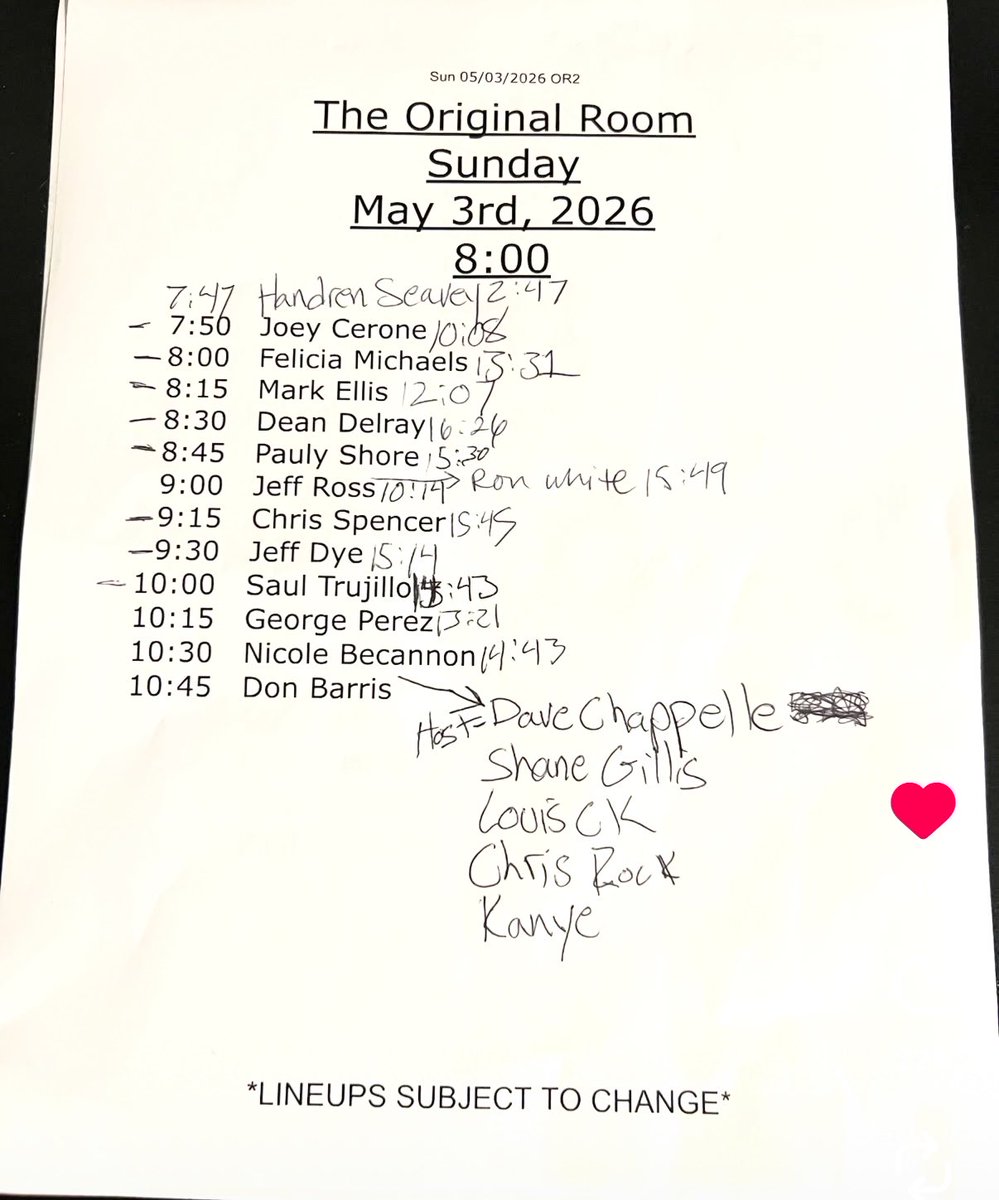 Sun 05/03/2026 OR2
The Original Room
Sunday
May 3rd, 2026
8:00
7:47 Handren Seavey 12:47
– 7:50 Joey Cerone 10:08
– 8:00 Felicia Michaels 13:31
– 8:15 Mark Ellis 12:07
– 8:30 Dean Delray 16:26
– 8:45 Pauly Shore 15:30
9:00 Jeff Ross 10:14 → Ron White 15:49
– 9:15 Chris Spencer 15:45
– 9:30 Jeff Dye 15:14
– 10:00 Saul Trujillo :43
10:15 George Perez 13:21
10:30 Nicole Becannon 14:43
10:45 Don Barris
Host= Dave Chappelle
Shane Gillis
Louis CK
Chris Rock
Kanye
*LINEUPS SUBJECT TO CHANGE*